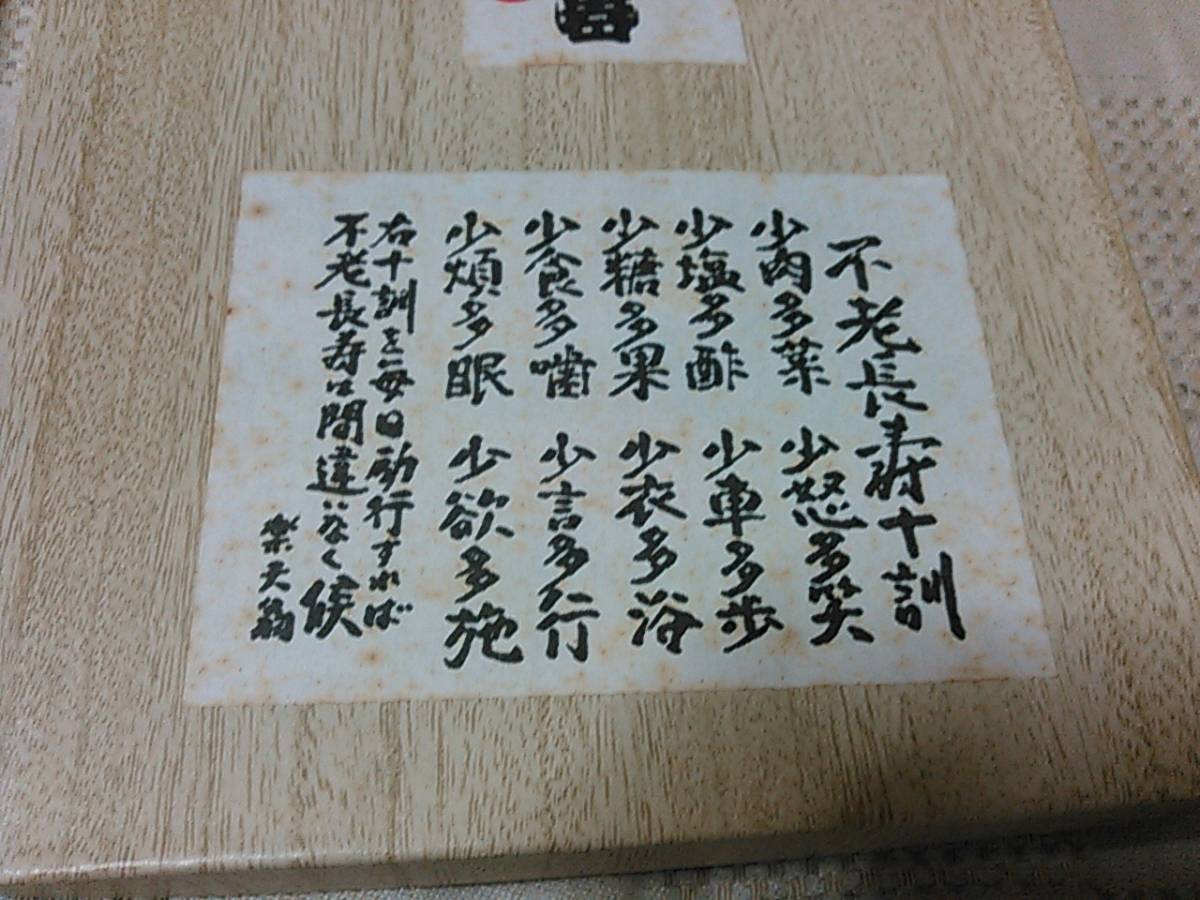 不老長寿十訓
少肉多菜 少怒多笑
少塩多酢 少車多歩
少糖多果 少衣多浴
少食多噛 少言多行
少煩多眠 少欲多施
右十訓を毎日励行すれば
不老長寿は間違いなく候
楽天翁